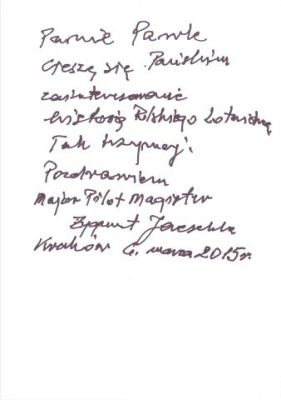 Panie Pawle
cieszę się Pańskim
zainteresowanie
historią Polskiego Lotnictwa
Tak trzymaj!
Pozdrawiam
Major Pilot Magister
Zygmunt
Kraków 6. marca 2015r.